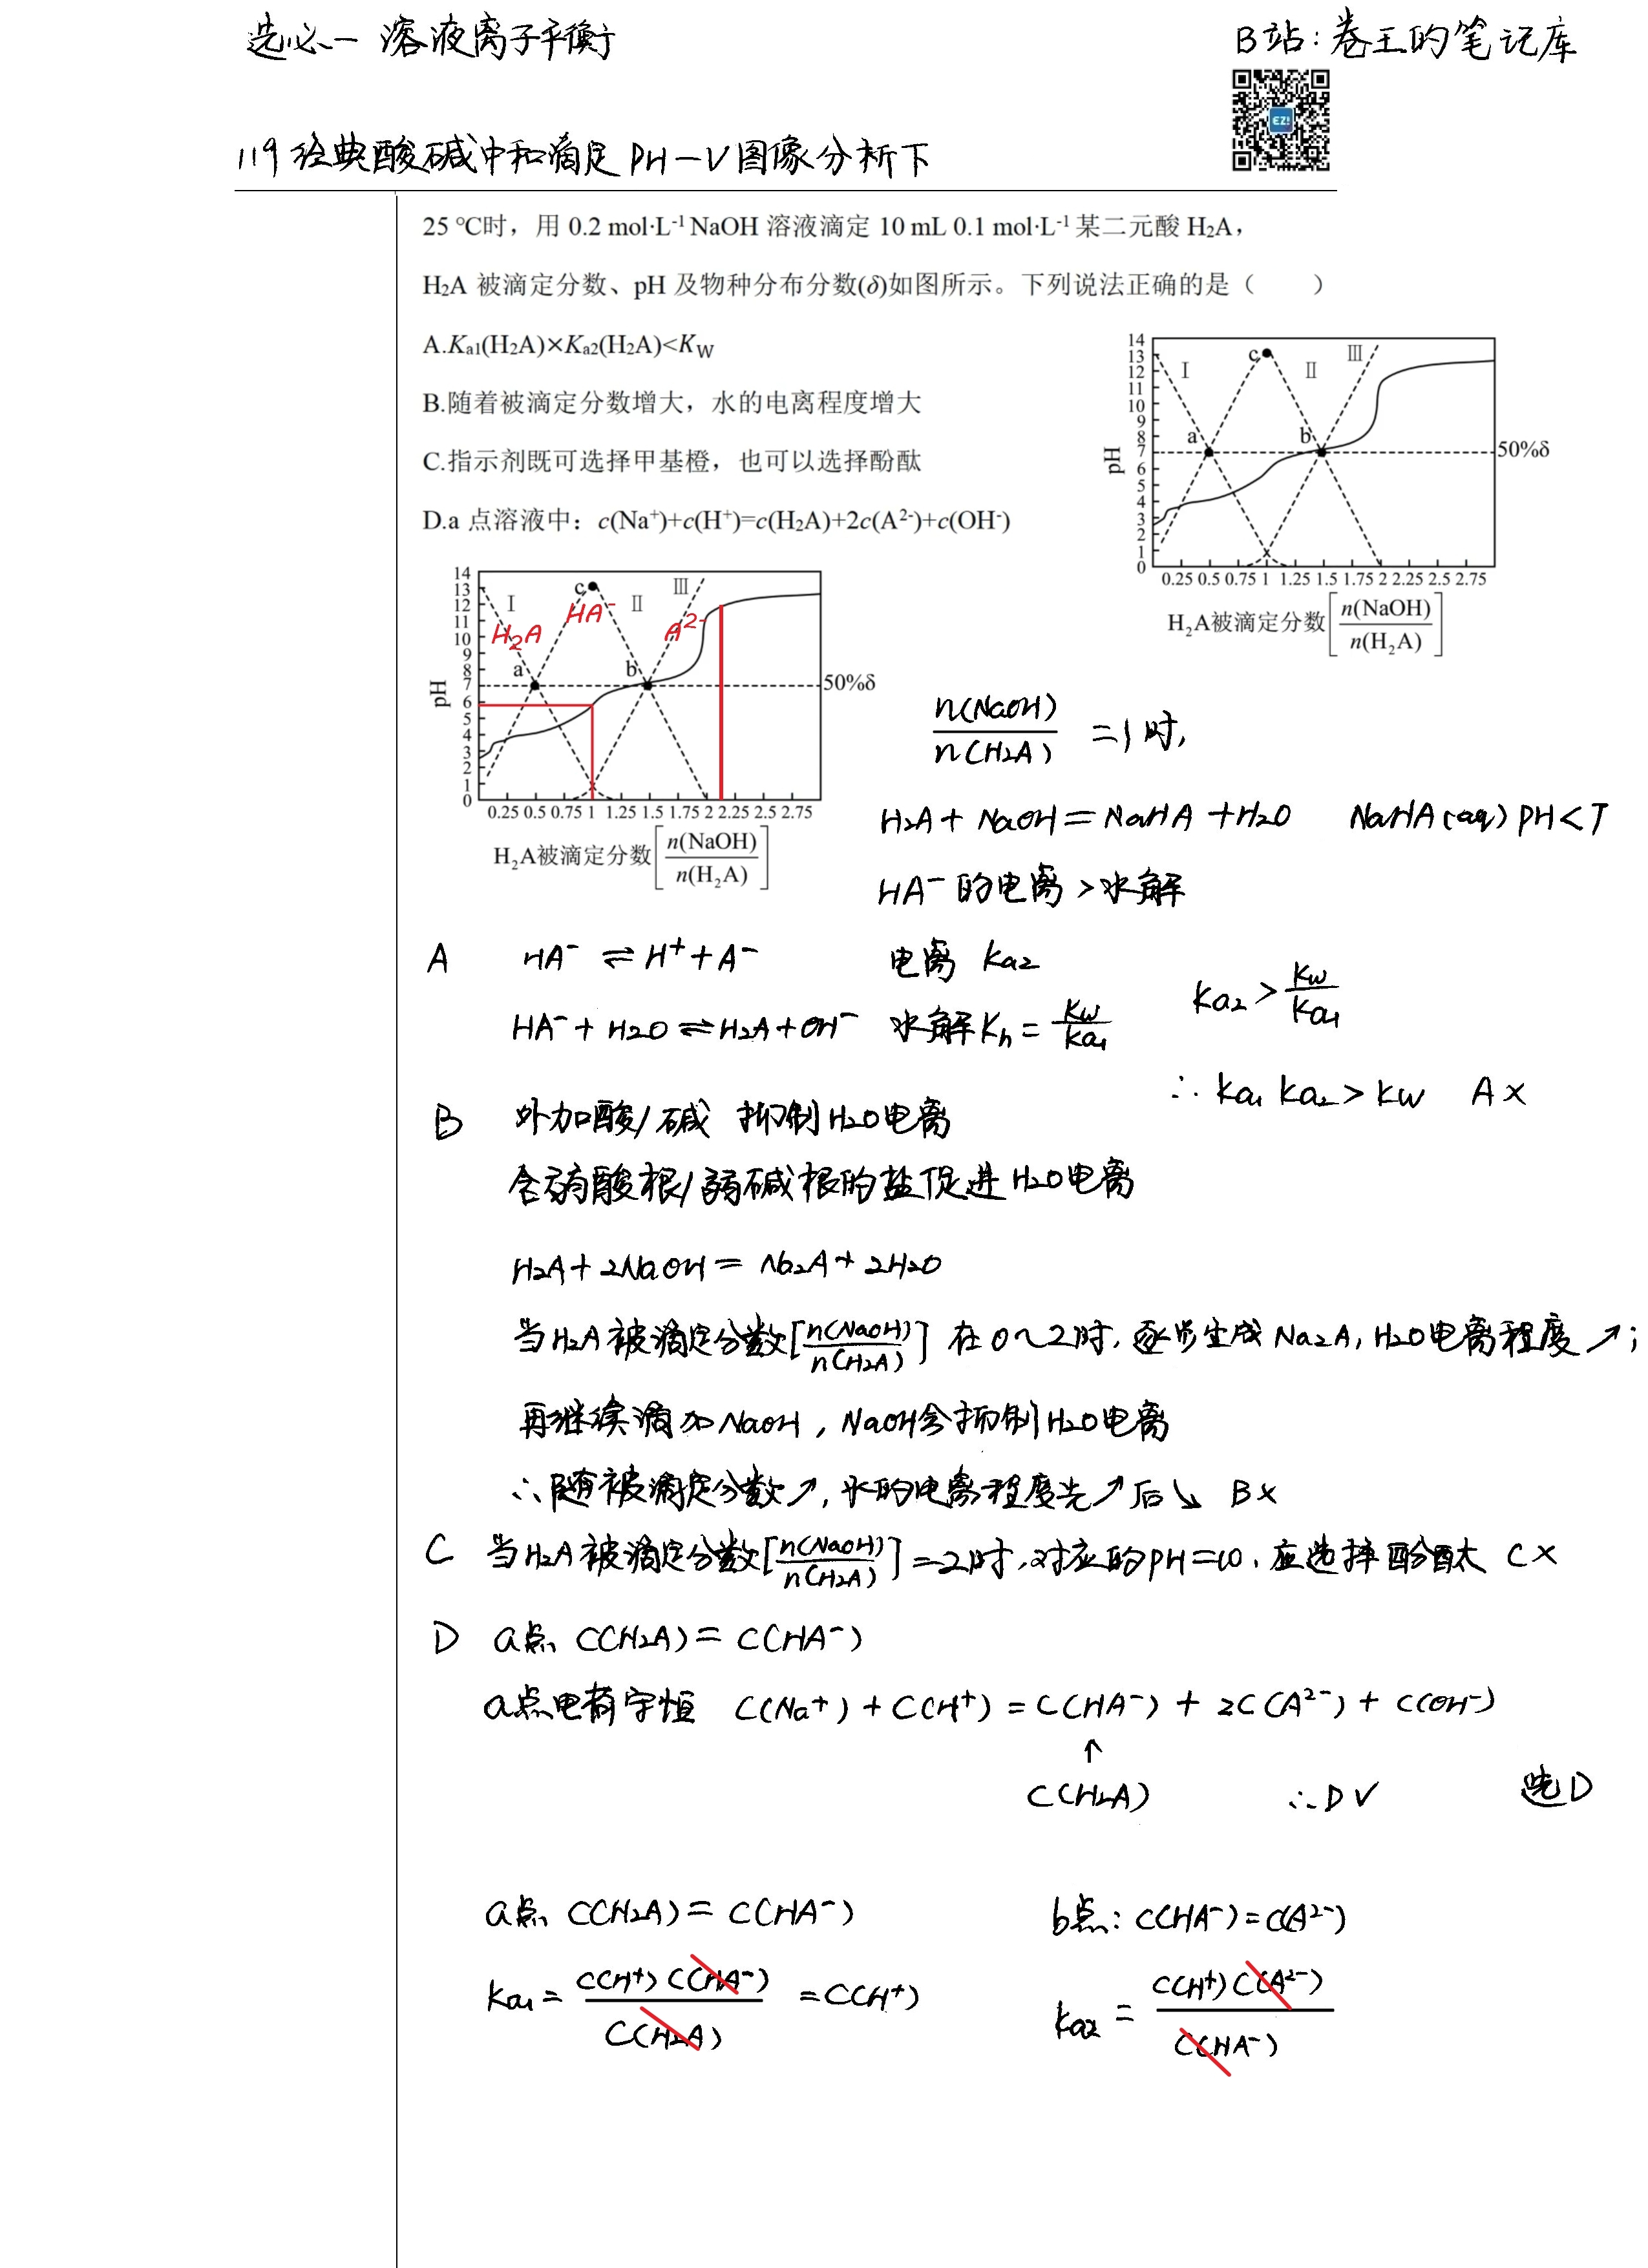 选必一 溶液离子平衡
B站:卷王的笔记库
EZ!
119 经典酸碱中和滴定 PH-V图像分析下
25 ℃时，用 0.2 mol·L⁻¹ NaOH 溶液滴定 10 mL 0.1 mol·L⁻¹ 某二元酸 H₂A，
H₂A 被滴定分数、pH 及物种分布分数(δ)如图所示。下列说法正确的是（ ）
A.Kₐ₁(H₂A)×Kₐ₂(H₂A)<K_W
B.随着被滴定分数增大，水的电离程度增大
C.指示剂既可选择甲基橙，也可以选择酚酞
D.a 点溶液中：c(Na⁺)+c(H⁺)=c(H₂A)+2c(A²⁻)+c(OH⁻)
14
13
12
11
10
9
8
7
6
5
4
3
2
1
0
pH
Ⅰ
c
Ⅱ
Ⅲ
a
b
50%δ
0.25 0.5 0.75 1 1.25 1.5 1.75 2 2.25 2.5 2.75
H₂A被滴定分数[n(NaOH)/n(H₂A)]
14
13
12
11
10
9
8
7
6
5
4
3
2
1
0
pH
Ⅰ
c
Ⅱ
Ⅲ
H₂A
HA⁻
A²⁻
a
b
50%δ
0.25 0.5 0.75 1 1.25 1.5 1.75 2 2.25 2.5 2.75
H₂A被滴定分数[n(NaOH)/n(H₂A)]
n(NaOH)/n(H₂A) =1时,
H₂A+NaOH=NaHA+H₂O NaHA(aq) PH<7
HA⁻的电离>水解
A HA⁻ ⇌ H⁺+A⁻ 电离 Ka₂
HA⁻+H₂O⇌H₂A+OH⁻ 水解Kh=Kw/Ka₁
Ka₂>Kw/Ka₁
∴Ka₁Ka₂>Kw A×
B 外加酸/碱 抑制H₂O电离
含弱酸根/弱碱根的盐促进H₂O电离
H₂A+2NaOH=Na₂A+2H₂O
当H₂A被滴定分数[n(NaOH)/n(H₂A)]在0~2时,逐步生成Na₂A,H₂O电离程度↗;
再继续滴加NaOH,NaOH会抑制H₂O电离
∴随被滴定分数↗,水的电离程度先↗后↘ B×
C 当H₂A被滴定分数[n(NaOH)/n(H₂A)]=2时,对应的PH=10,应选择酚酞 C×
D a点 C(H₂A)=C(HA⁻)
a点电荷守恒 C(Na⁺)+C(H⁺)=C(HA⁻)+2C(A²⁻)+C(OH⁻)
↑
C(H₂A) ∴D√ 选D
a点 C(H₂A)=C(HA⁻)
b点:C(HA⁻)=C(A²⁻)
Ka₁=C(H⁺)C(HA⁻)/C(H₂A)=C(H⁺)
Ka₂=C(H⁺)C(A²⁻)/C(HA⁻)